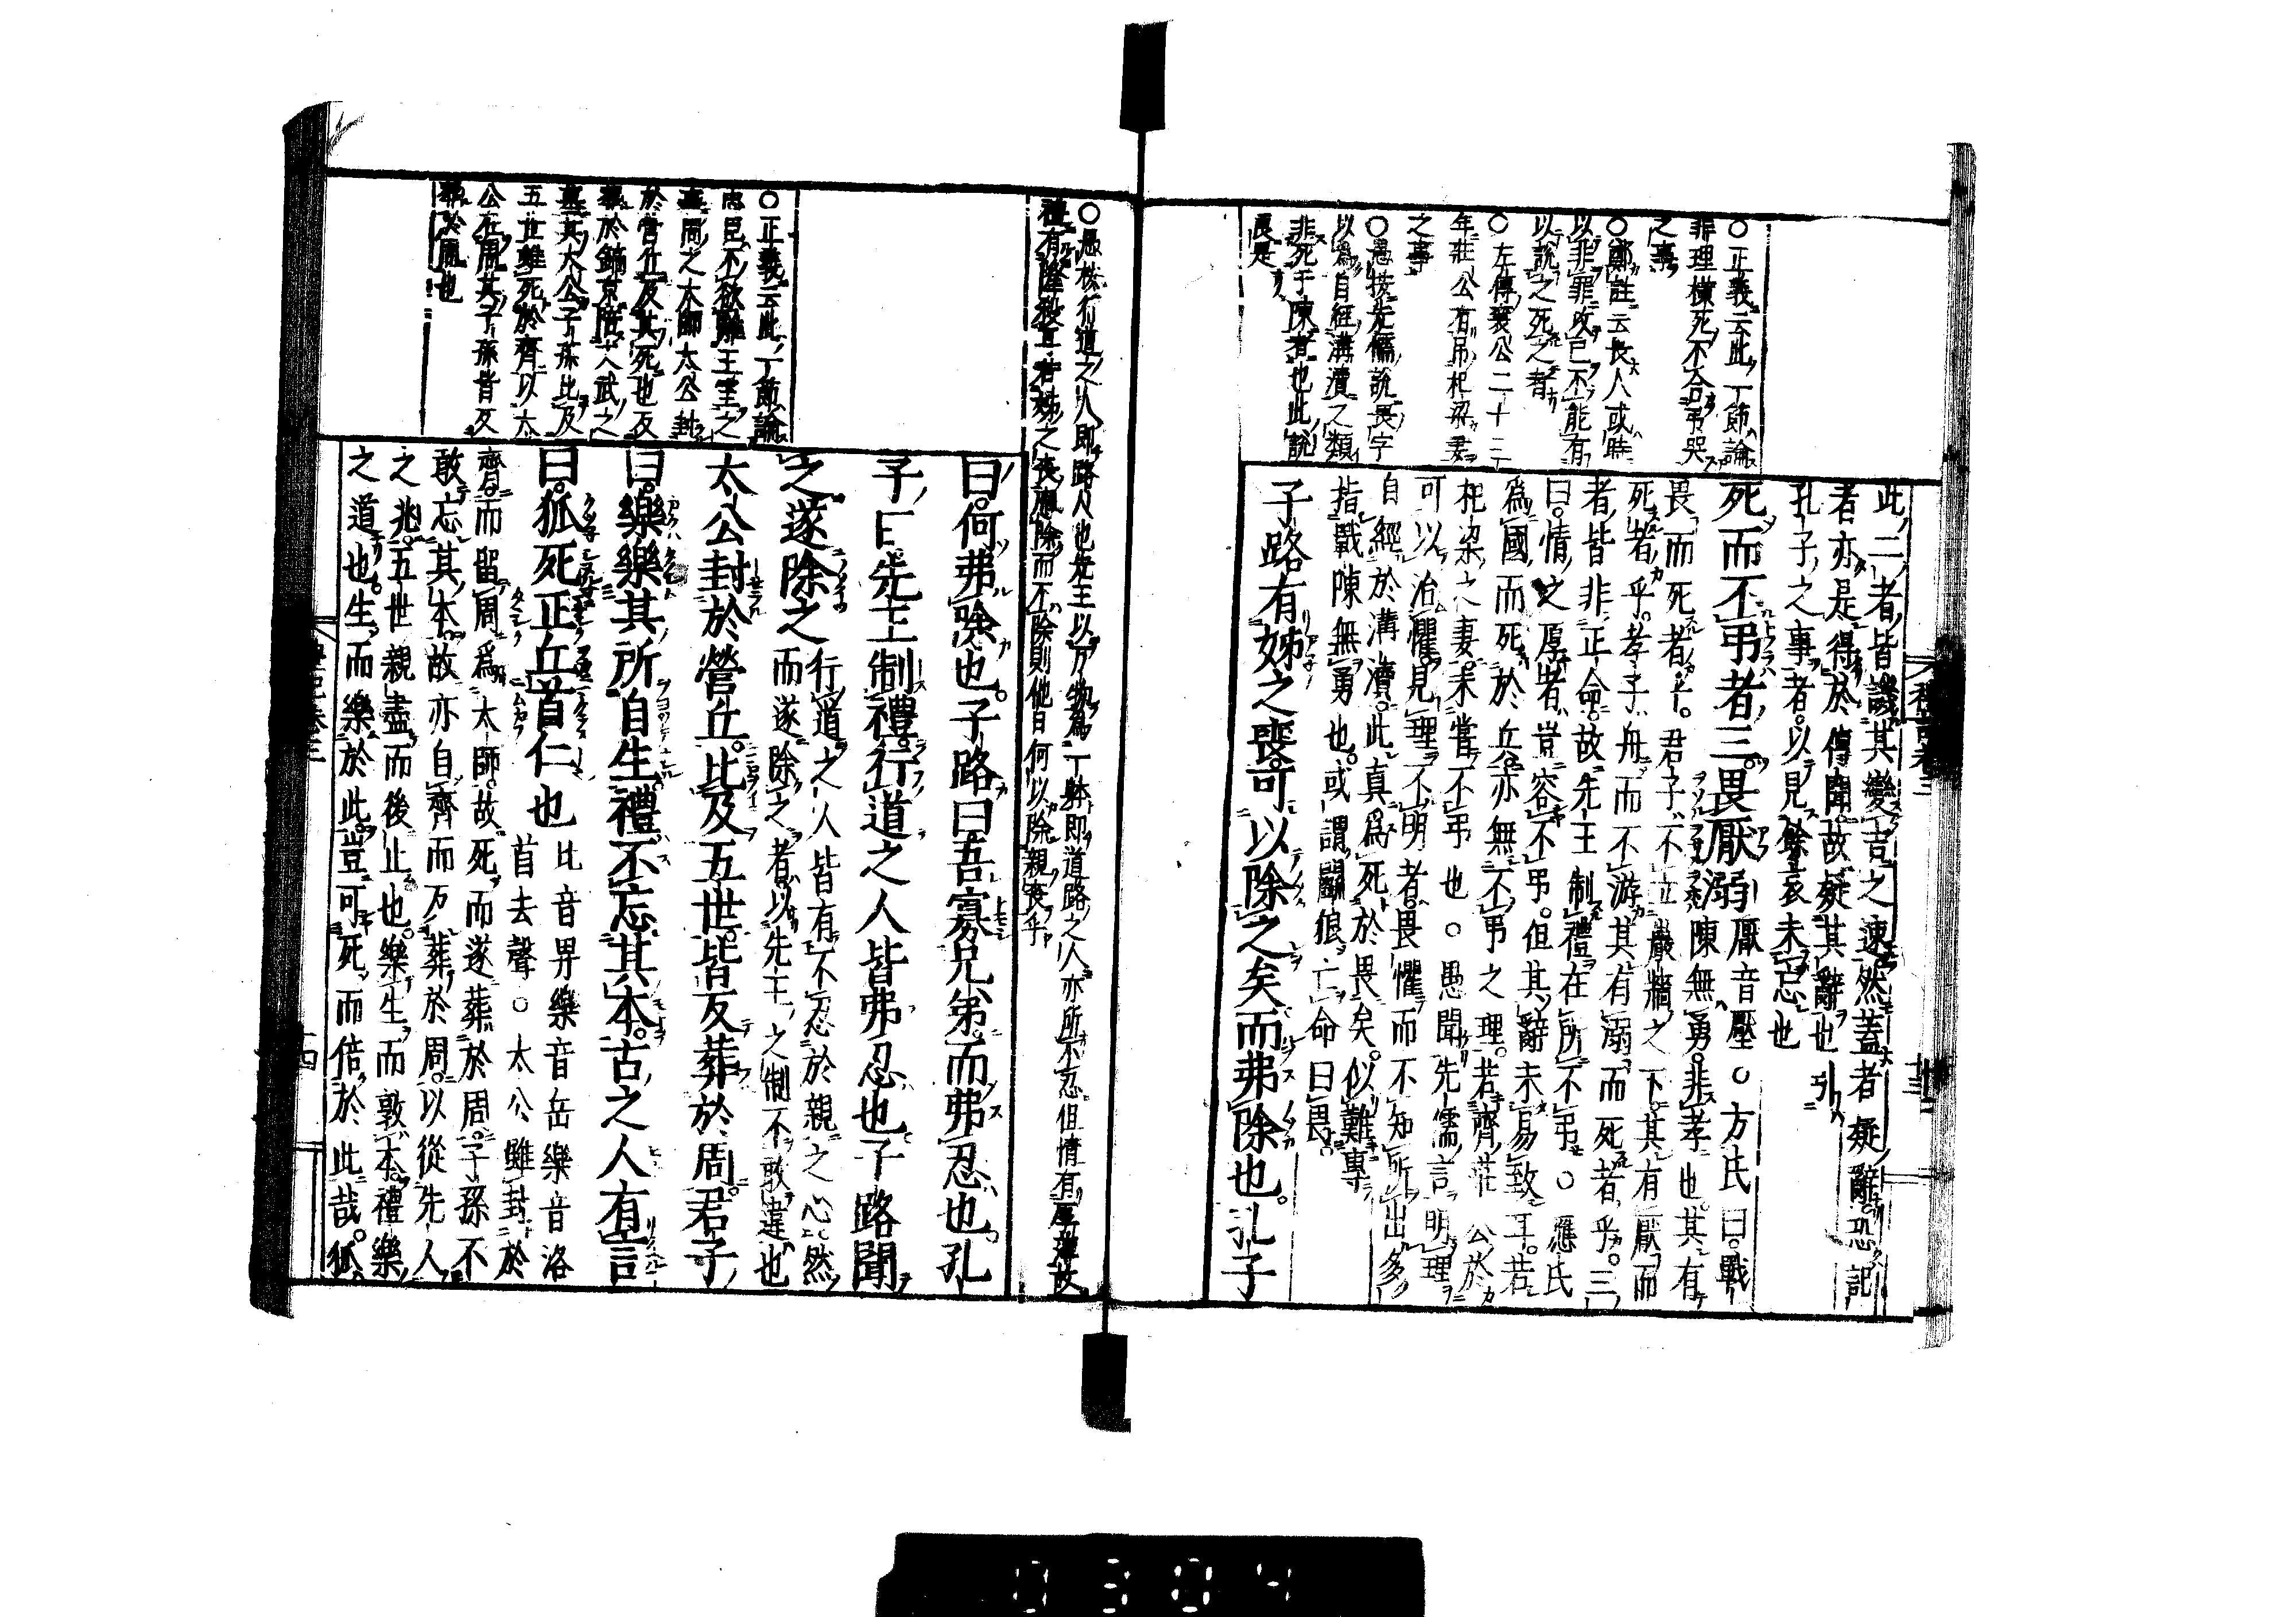 此二者皆譏其變吉之速然蓋者疑辭恐記
者亦是得於傳聞故疑其辭也
孔子之事者以見餘哀未忘也
死而不弔者三畏厭溺
厭音壓○方氏曰戰
陳無勇非孝也其有
畏而死者乎君子不立巖牆之下其有厭而
死者乎孝子舟而不游其有溺而死者乎三
者皆非正命故先王制禮在所不弔○應氏
曰情之厚者豈容不弔但其辭未易致耳若
爲國而死於兵亦無不弔之理若齊莊公於
杞梁之妻未嘗不弔也○愚聞先儒言明理
可以治懼見理不明者畏懼而不知所出多
自經於溝瀆此真爲死於畏矣似難專
指戰陳無勇也或謂鬭狠亡命曰畏
子路有姊之喪可以除之矣而弗除也孔子
○正義云此一節論
非理橫死不合弔哭
之事
○鄭註云人或時
以非罪攻己不能有
以說之死之者
○左傳襄公二十三
年莊公有弔杞梁妻
之事
○愚按先儒說畏字
以爲自經溝瀆之類
非死于陳者也此說
爲是
○愚按行道之人即路人也先王以万物爲一躰即道路之人亦所不忍但情有厚薄故
禮有隆殺耳若姊之喪應除而不除則他日何以除親喪乎
曰何弗除也子路曰吾寡兄弟而弗忍也孔
子曰先王制禮行道之人皆弗忍也子路聞
之遂除之
行道之人皆有不忍於親之心然
而遂除之者以先王之制不敢違也
太公封於營丘比及五世皆反葬於周君子
曰樂樂其所自生禮不忘其本古之人有言
曰狐死正丘首仁也
比音畀樂音岳樂音洛
首去聲○太公雖封於
齊而留周爲太師故死而遂葬於周子孫不
敢忘其本故亦自齊而反葬於周以從先人
之兆五世親盡而後止也樂生而敦本禮樂
之道也生而樂於此豈可死而倍於此哉狐
○正義云此一節論
忠臣不欲離王室之
事周之太師太公封
於營丘及其死也反
葬於鎬京陪文武之
墓其太公子孫比及
五世雖死於齊以太
公在周其子孫皆反
葬於周也